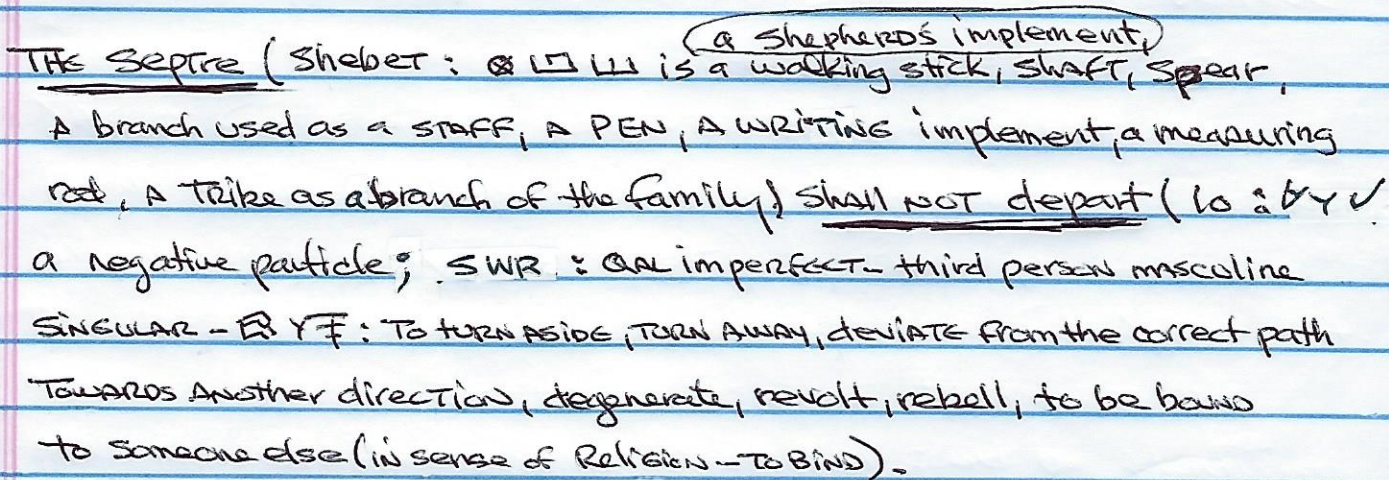 a shepherds implement,
THE Septre (Shebet : is a walking stick, shaft, spear,
A branch used as a STAFF, A PEN, A WRITING implement, a measuring
rod, A Tribe as a branch of the family) Shall NOT depart (lo :
a negative particle; SWR : QAL imperfect - third person masculine
SINGULAR - : To turn aside, turn away, deviate from the correct path
Towards Another direction, degenerate, revolt, rebell, to be bound
to someone else (in sense of Religion - TO BIND).